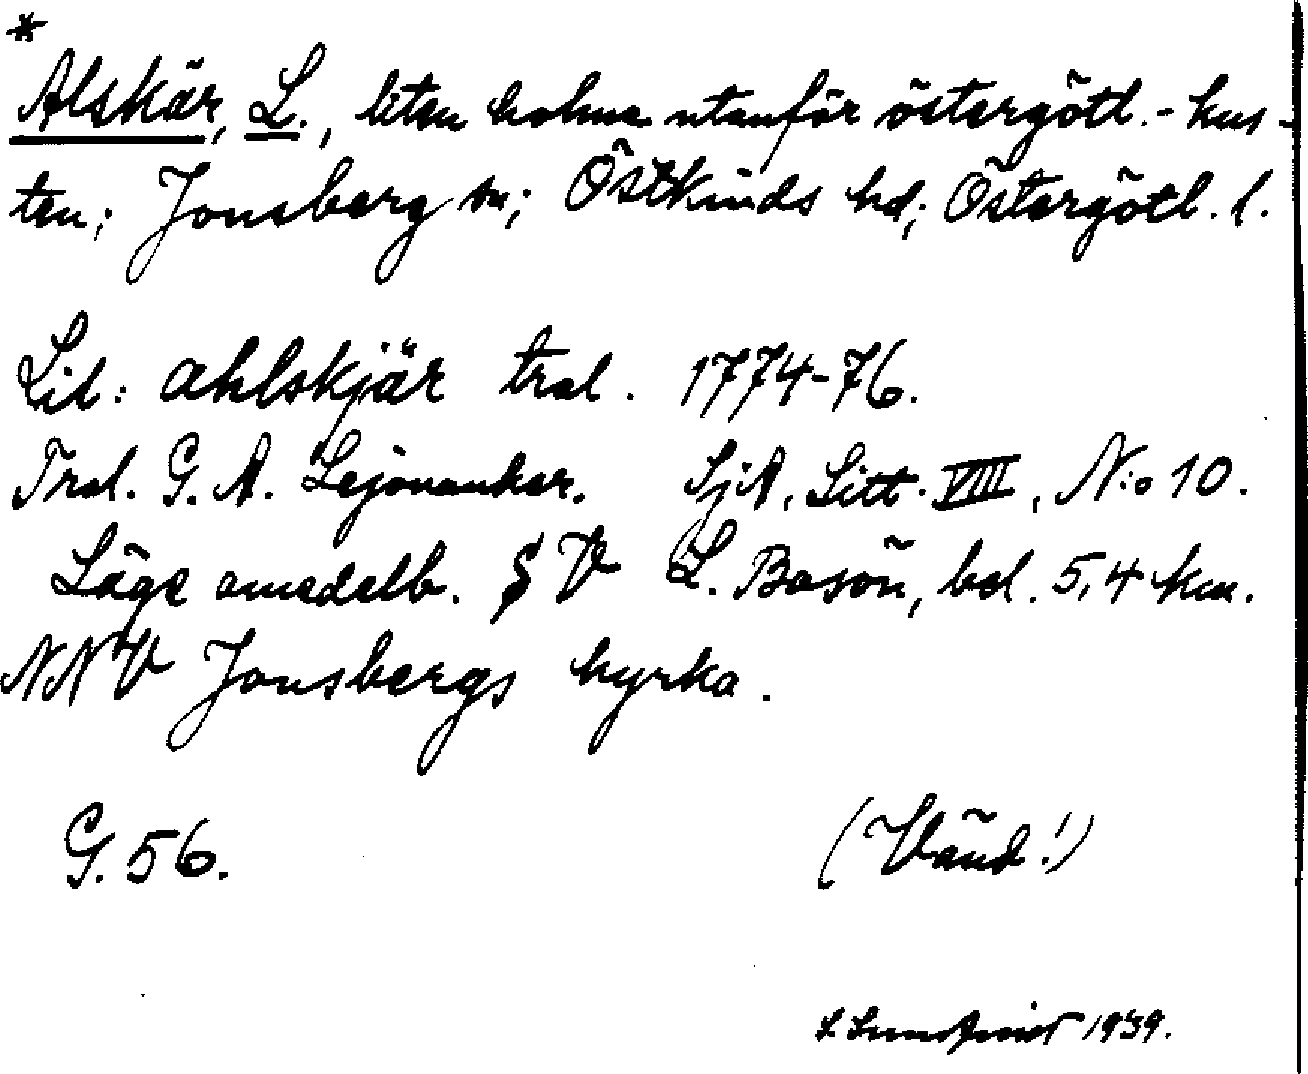 *
Alskär, L., liten holme utanför östergötl.-kus-
ten; Jonsberg sn; Östkinds hd; Östergötl. l.
Lil: ahlskjär tral. 1774-76.
Tral. G. A. Lejonankar. SjA, Litt. VIII, N:o 10.
Läge omedelb. S V L. Bosön, bel. 5,4 km.
NNV Jonsbergs kyrka.
G. 56.
(Vänd!)
1939.